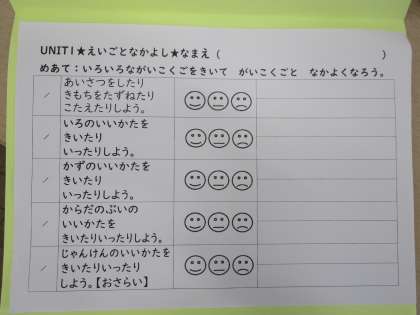 UNIT1★えいごとなかよし★なまえ（　　　　　　　　）
めあて：いろいろながいこくごをきいて　がいこくごと　なかよくなろう。
／
あいさつをしたり
きもちをたずねたり
こたえたりしよう。
／
いろのいいかたを
きいたり
いったりしよう。
／
かずのいいかたを
きいたり
いったりしよう。
／
からだのぶいの
いいかたを
きいたりいったりしよう。
／
じゃんけんのいいかたを
きいたりいったり
しよう。【おさらい】